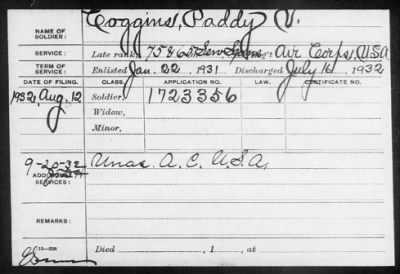 NAME OF SOLDIER: Coggins, Paddy V.
SERVICE: Late rank, 75 & 65 Serv Sqdns Air Corps, USA
TERM OF SERVICE: Enlisted Jan. 22, 1931 Discharged July 16, 1932
DATE OF FILING. CLASS. APPLICATION NO. LAW. CERTIFICATE NO.
1932, Aug. 12 Soldier, 1723356
Widow,
Minor,
9-20-32 Unas. A. C. U.S.A.
ADDITIONAL SERVICES:
REMARKS:
Died , 1 , at